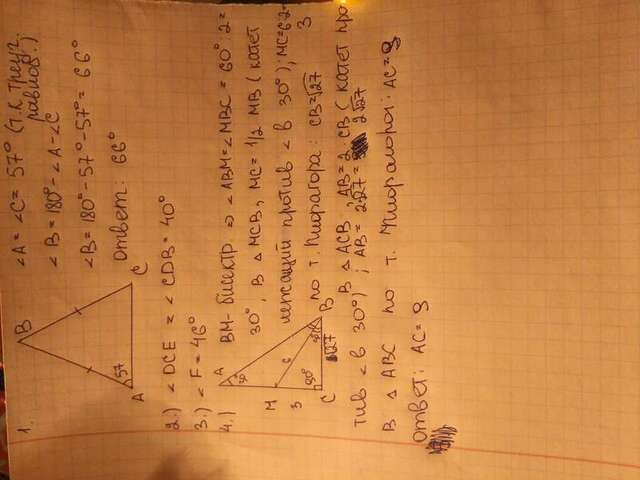 1.
B
57
A
C
∠A = ∠C = 57° (т.к. треуг. равноб.)
∠B = 180° - ∠A - ∠C
∠B = 180° - 57° - 57° = 66°
Ответ: 66°
2.) ∠DCE = ∠CDB = 40°
3.) ∠F = 46°
4.)
A
30
M
6
3
90°
C
√27
B
BM - бисектр => ∠ABM = ∠MBC = 60°:2 =
30°, В △ MCB, MC = 1/2 MB (катет
лежащий против ∠ в 30°); MC = 6:2=
3
по т. Пифагора: CB = √27
В △ ACB, AB = 2·CB (катет про
тив ∠ в 30°); AB = 2·√27 = 2√27
В △ ABC по т. Пифагора: AC = 9
Ответ: AC = 9